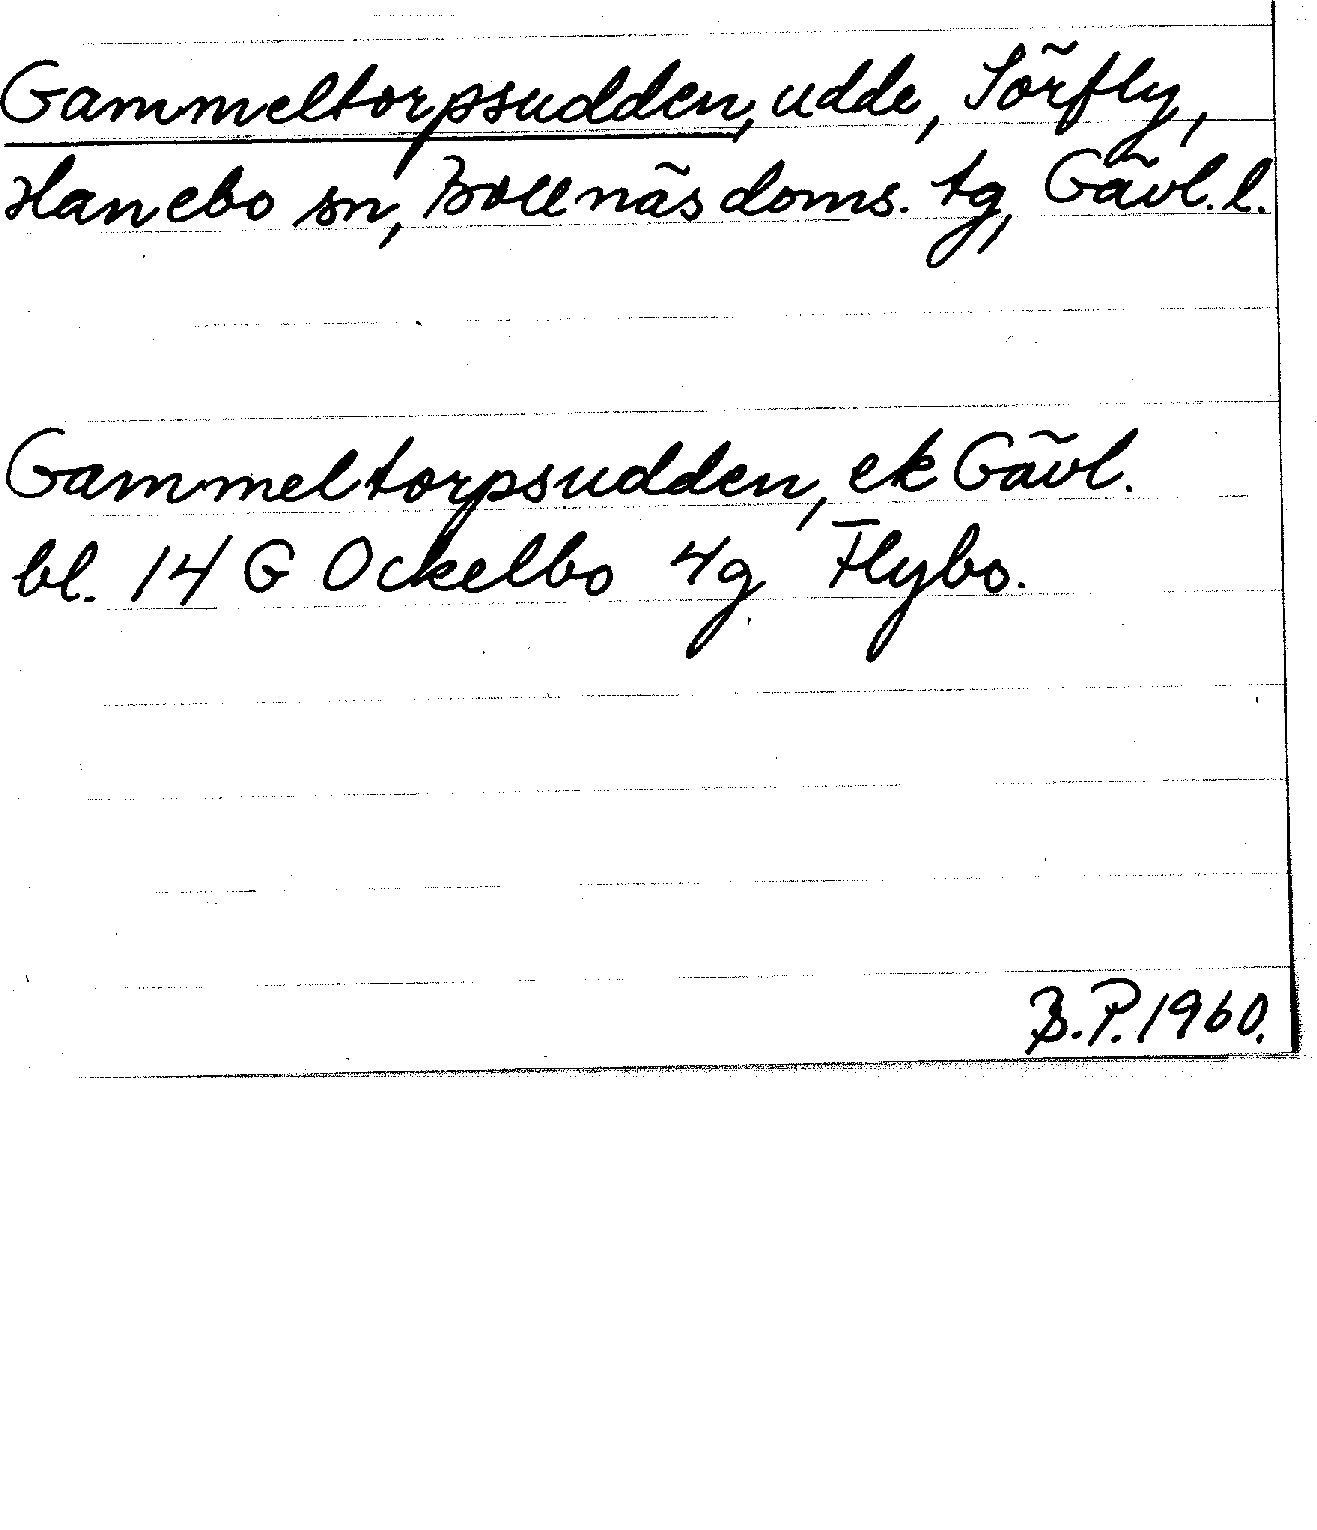 Gammeltorpsudden, udde, Sörfly,
Hanebo sn, Bollnäs doms. tg, Gävl. l.
Gammeltorpsudden, ek Gävl.
bl. 14 G Ockelbo 4g Flybo.
B.P. 1960.